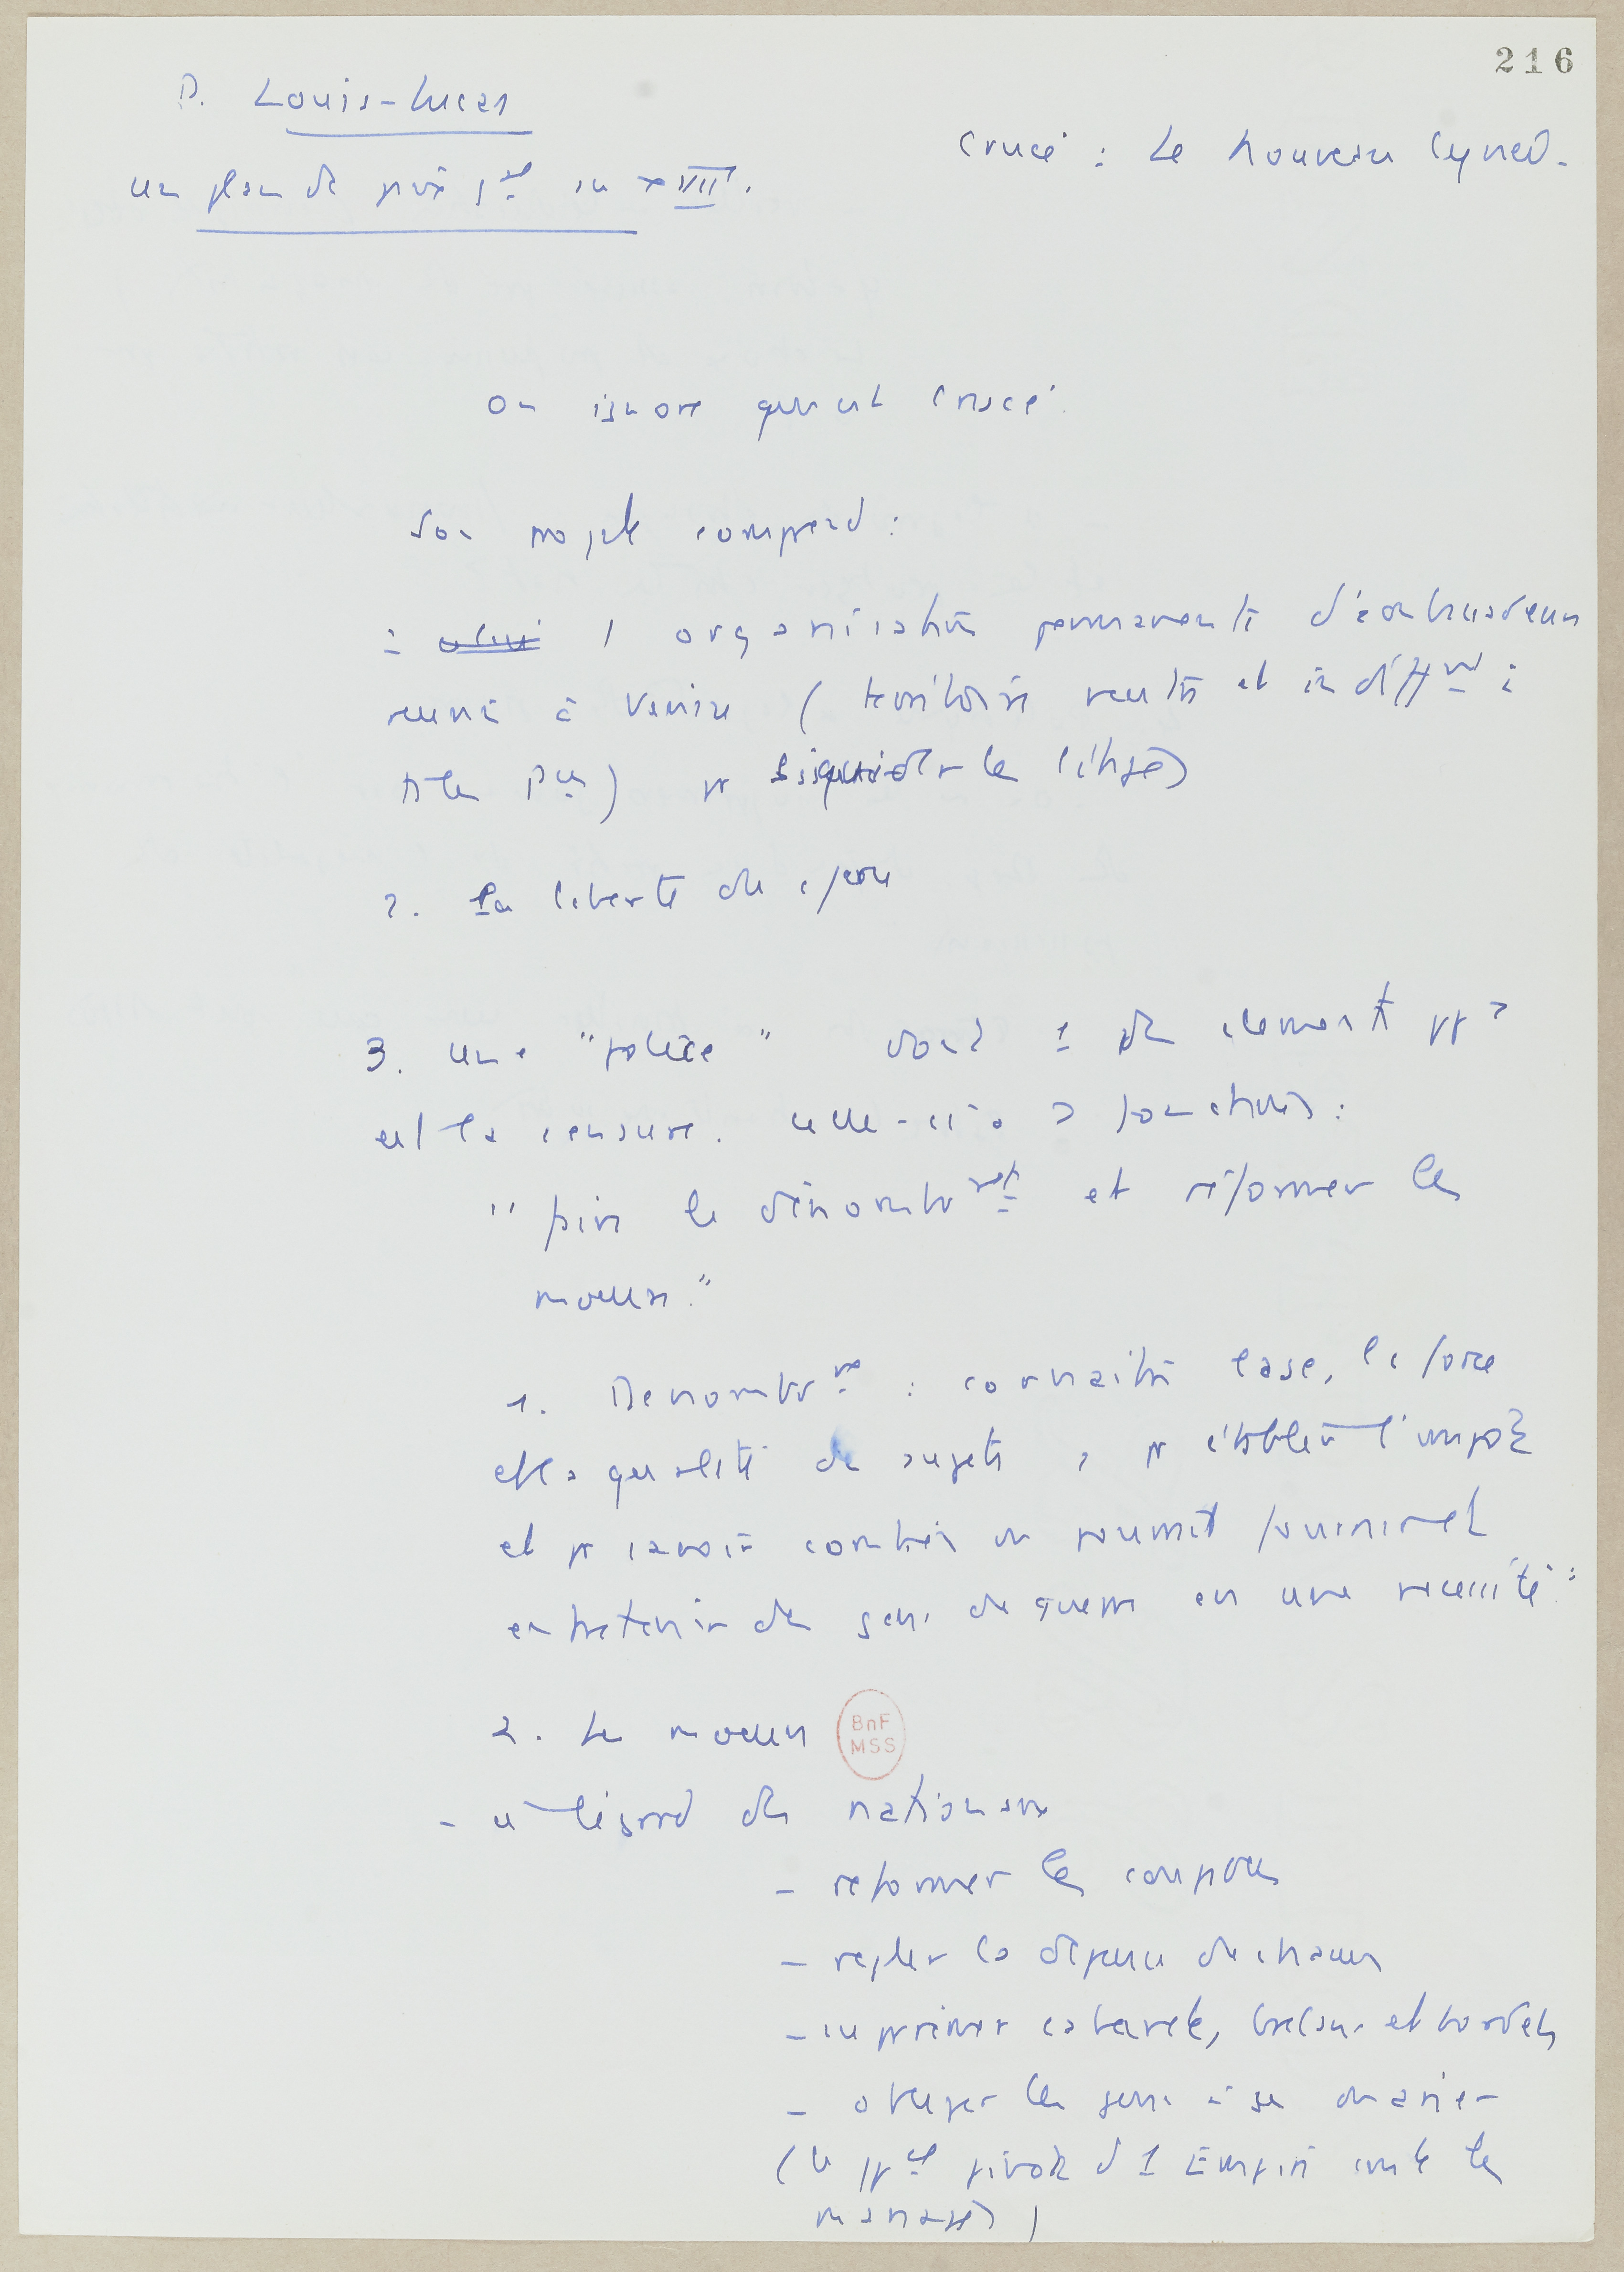 216
P. Louis-Lucas
un plan de paix gal au XVIIe.
Crucé : Le Nouveau Cynéd.
on ignore qui est Crucé.
Son projet comprend :
1 organisation permanente d'ambassadeurs
réunie à Venise ( territoire neutre et indifft à
ts les Pces) pr liquider les litiges
2. La liberté du
3. une "police" dont 1 des éléments ppx
est la censure. celle-ci a 2 fonctions :
"faire le dénombrt et réformer les
moeurs."
1. Dénombrt : connaître l'âge, la force
et la qualité des sujets, pr établir l'impôt
et pr savoir combien on pourrait fournir et
entretenir de gens de guerre en une nécessité.
2. Les moeurs
BnF
MSS
- à l'égard des nationaux
- réformer les
- régler la dépense de chacun
- supprimer cabarets, brelans et bordels
- obliger les gens à se marier
( le ppal pivot d' 1 Empire sont les
mariages )